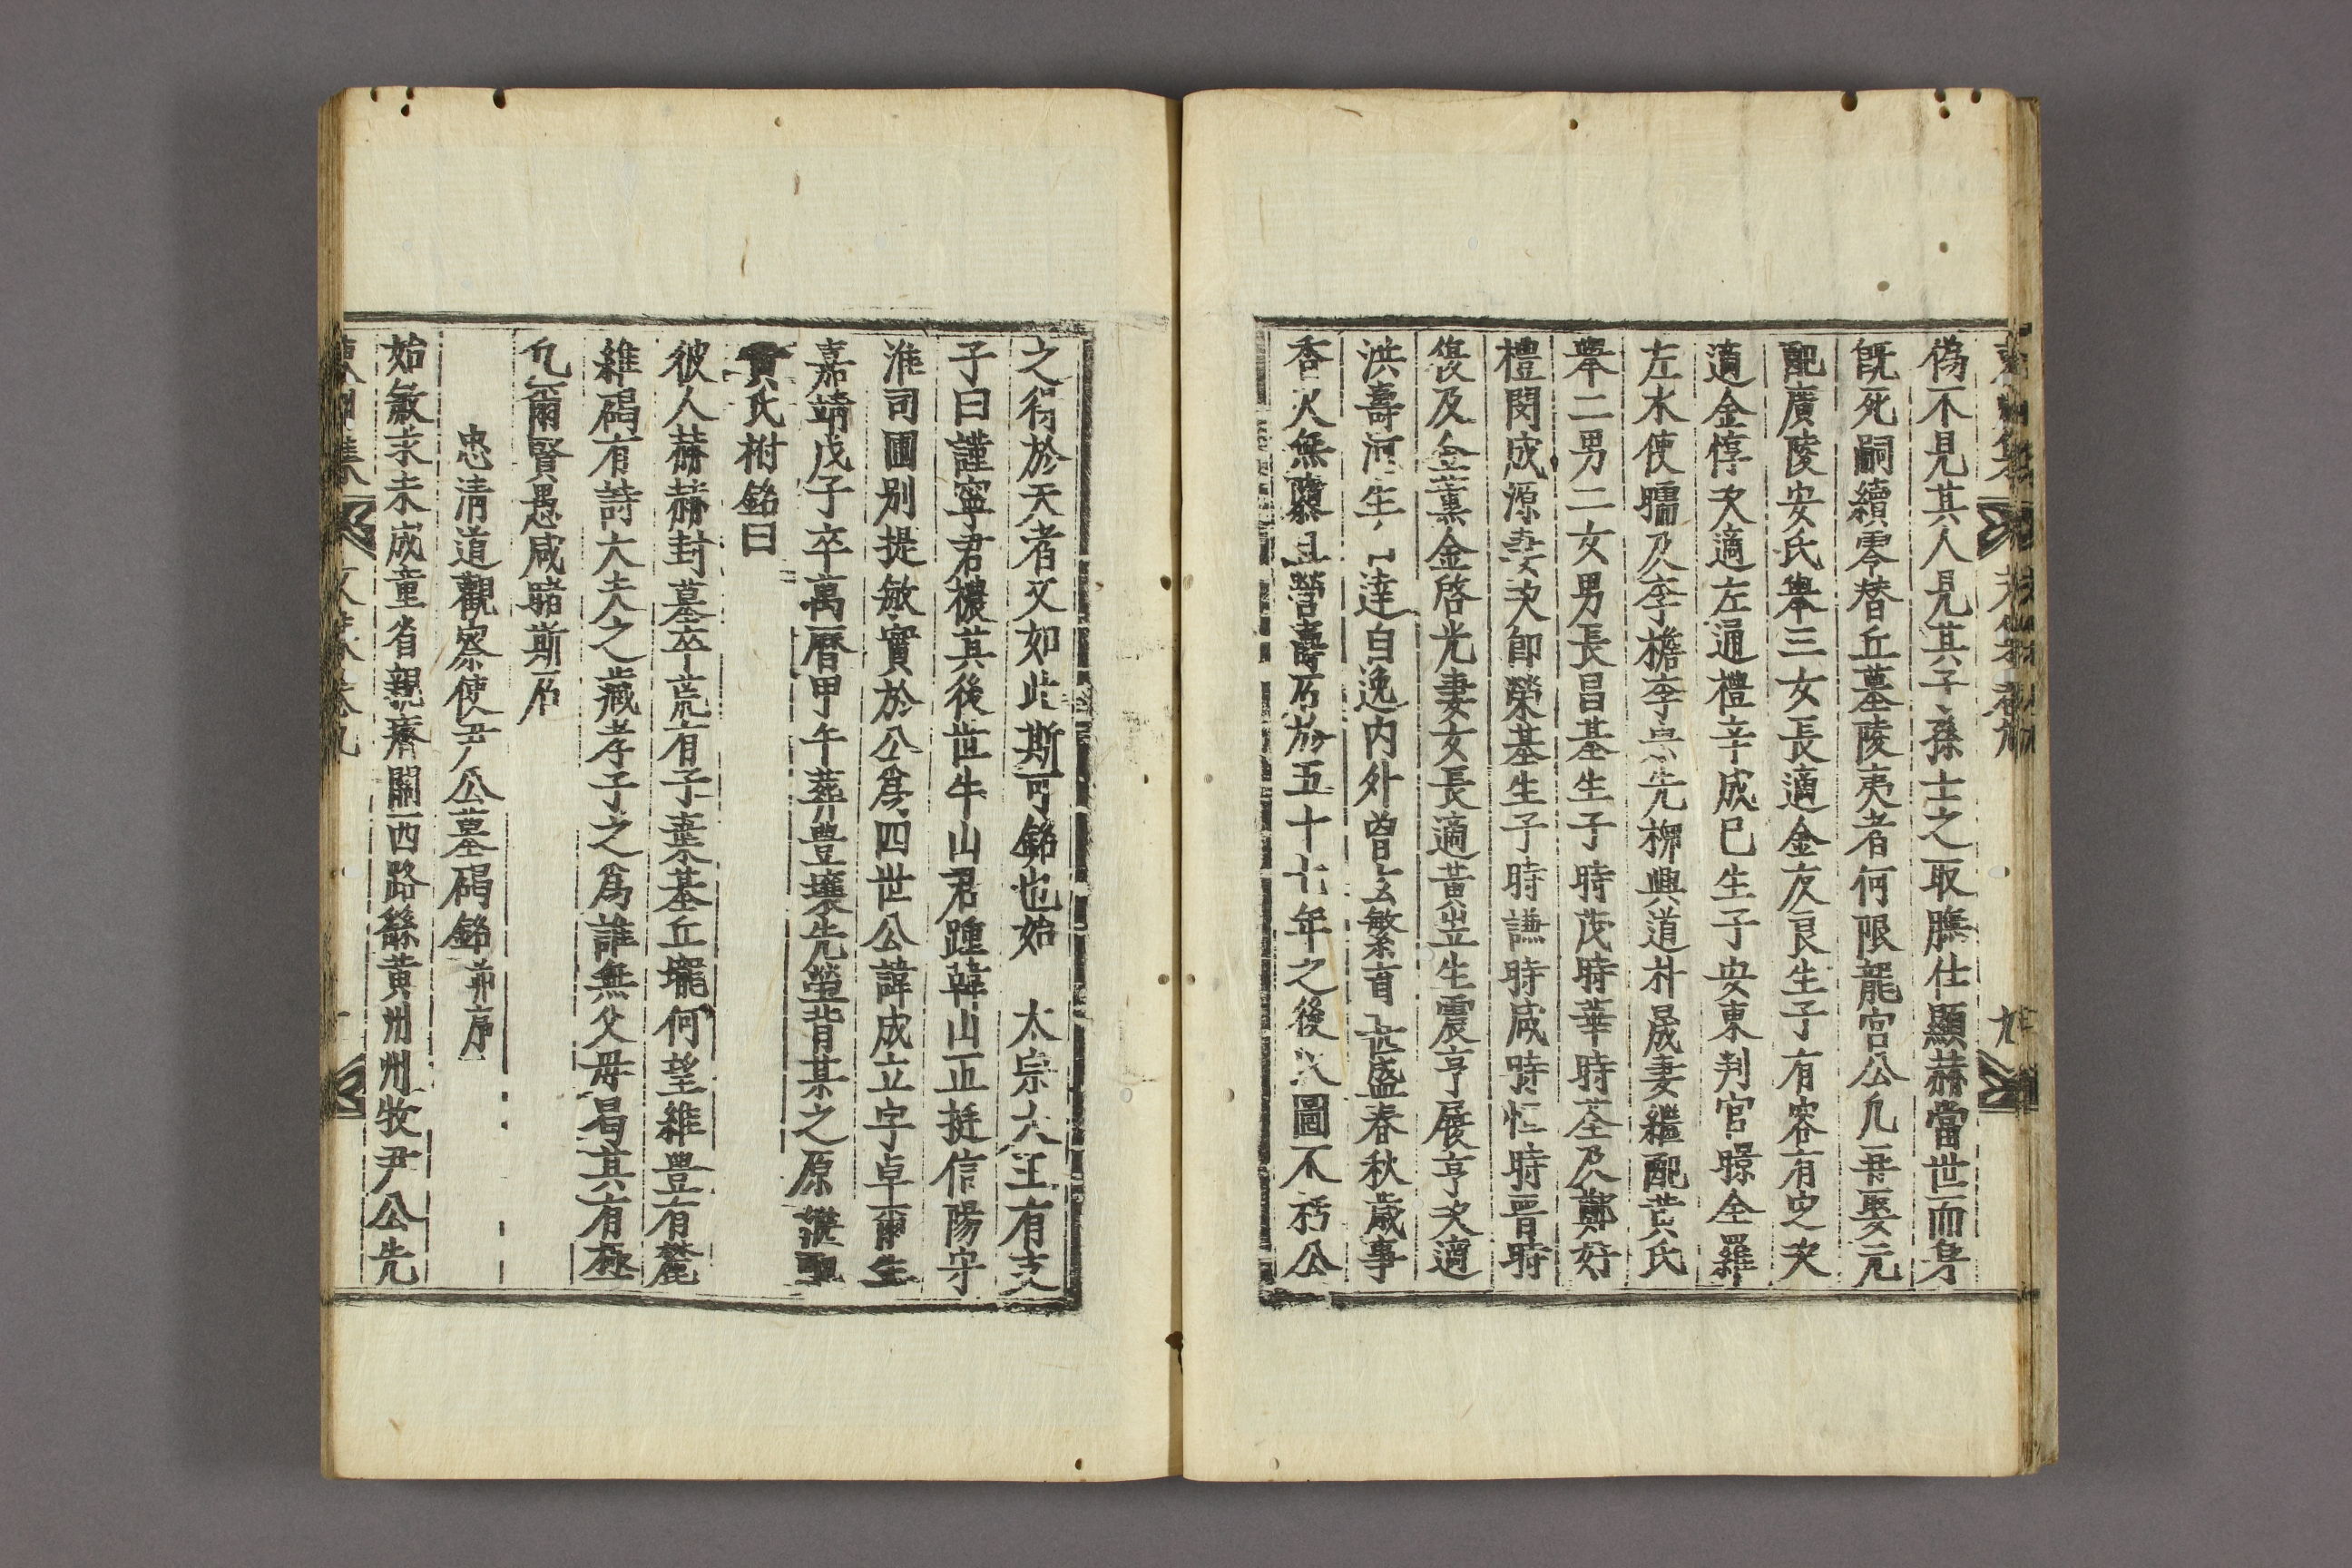 偽不見其人見其子孫士之取膴仕顯赫當世而身
旣死嗣續零替丘墓陵夷者何限龍宮公凡再娶元
配廣陵安氏擧三女長適金友良生子有容有定次
適金惇次適左通禮辛成巳生子安東判官曔金羅
左水使曘及李檐李忠先柳興道朴晟妻繼配黃氏
擧二男二女男長昌基生子時茂時華時荃及鄭好
禮閔成源妻次卽榮基生子時謙時咸時恒時晋時
俊及金薰金啓光妻女長適黃岦生震亨展亨次適
洪壽河生達白逸內外曾玄繁育長盛春秋歲事
香火無墮且營壽石於五十七年之後圖不朽公
之衍於天者又如此斯可銘也始 太宗大王有支
子曰謹寧君穠其後世牛山君踵韓山正挺信陽守
淮司圃別提敏實於公爲四世公諱成立字卓爾生
嘉靖戊子卒萬曆甲午葬豊壤先塋背某之原
黃氏祔銘曰
彼人赫赫封墓卒荒有子棄基丘壠何望維豊有麓
維碣有詩大夫之藏孝子之爲誰無父母曷其有極
凡爾賢愚咸眂斯石
忠淸道觀察使尹公墓碣銘 幷序
始敏求未成童省親痾關西路繇黃州州牧尹公先
東州集 文集卷九